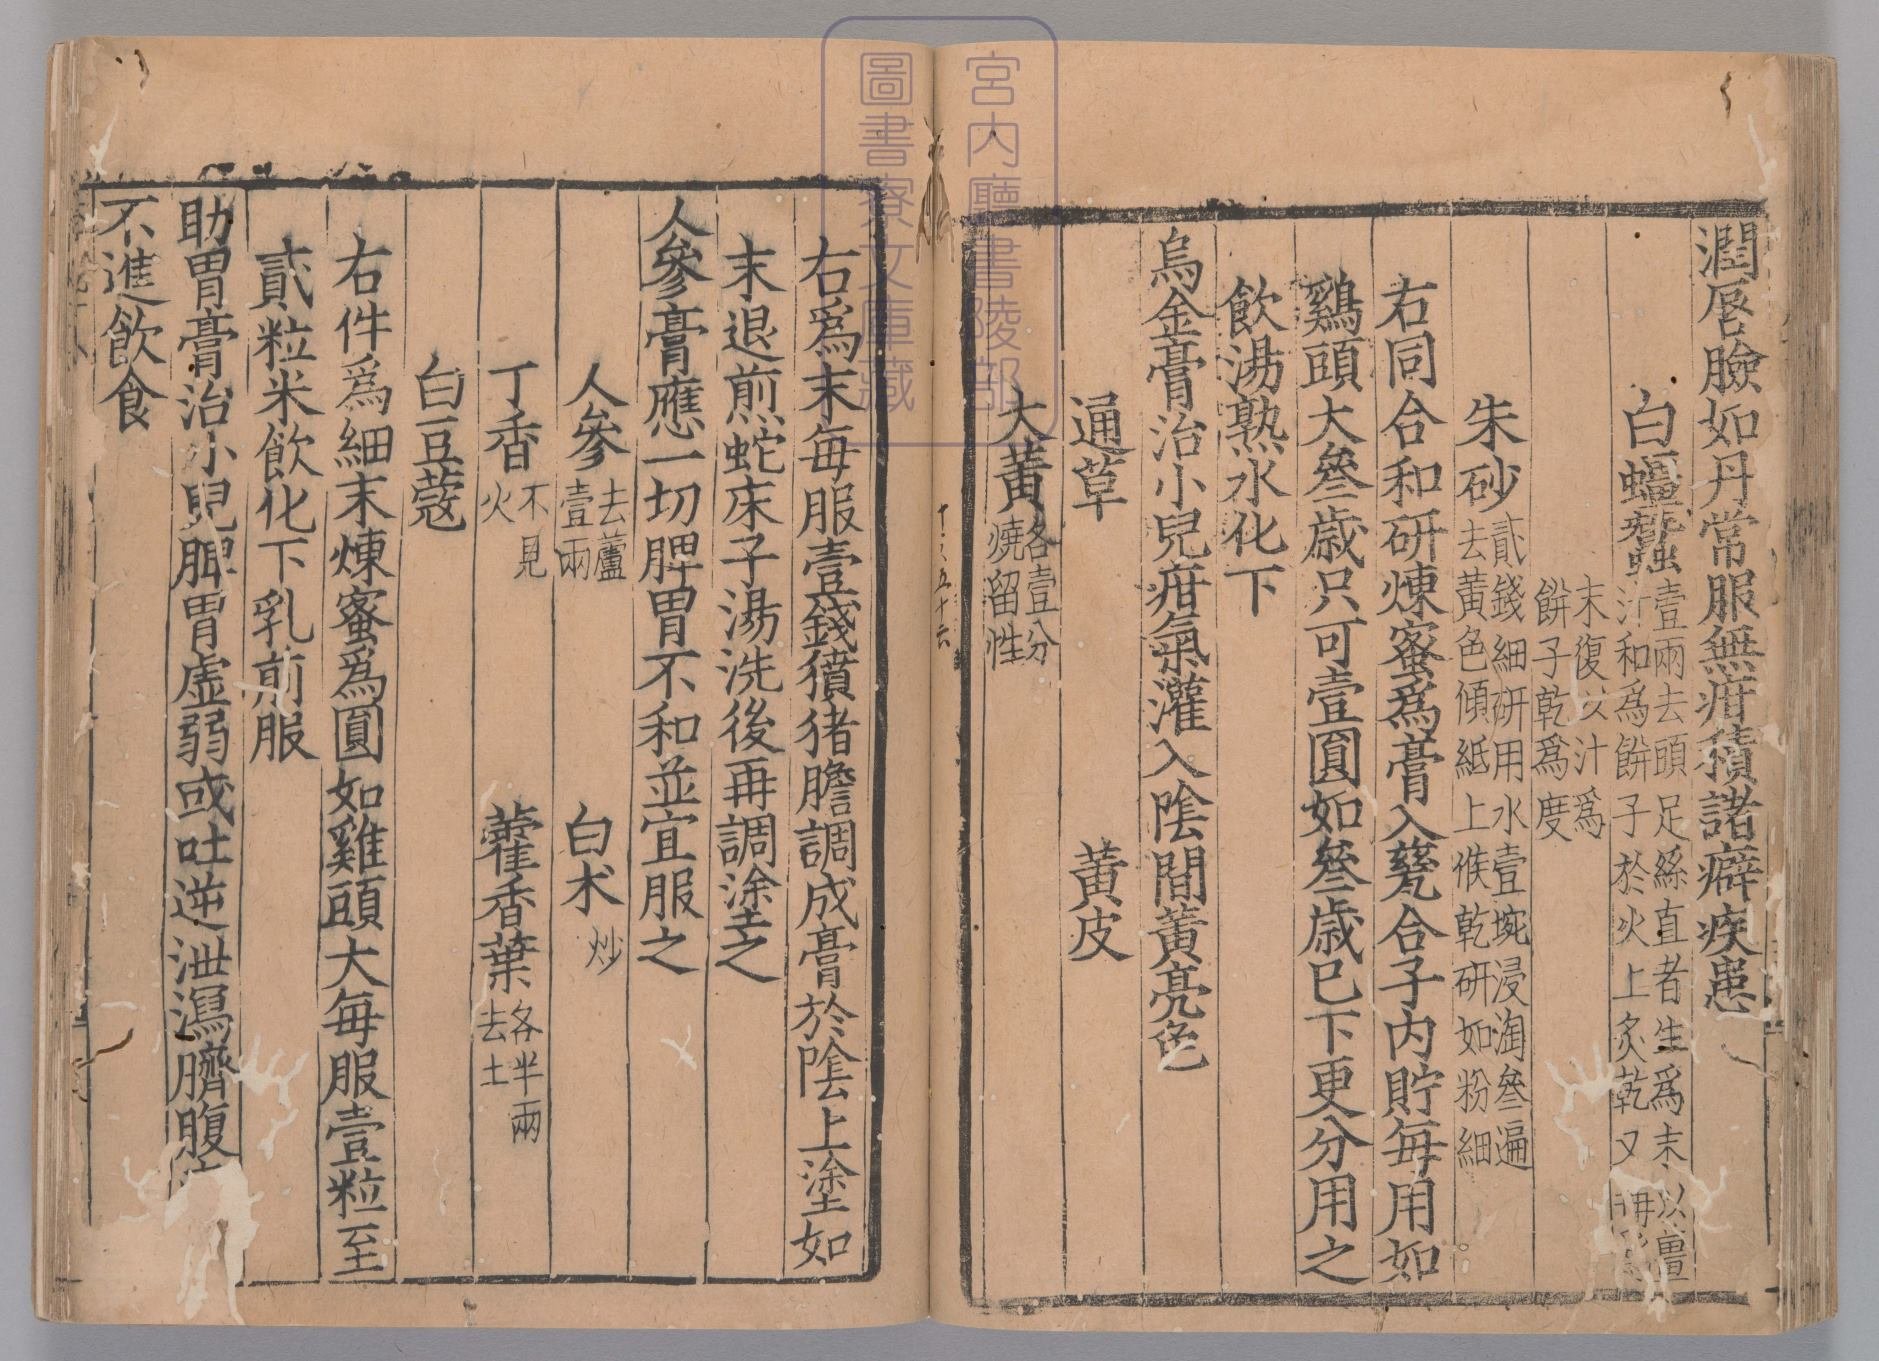 潤唇臉如丹常服無疳積諸癖疾患
白殭蠶壹兩去頭足絲直者生爲末以薑
汁和爲餅子於火上炙乾又再
末復以汁爲
餅子乾爲度
朱砂貳錢細研用水壹埦浸淘叄遍
去黃色傾紙上候乾研如粉細
右同合和研煉蜜爲膏入甆合子内貯每用如
鷄頭大叄歲只可壹圓如叄歲已下更分用之
飲湯熟水化下
烏金膏治小兒疳氣灌入隂間黃亮色
通草 黃皮
大黃各壹分
燒留性
十八 五十六
右爲末每服壹錢獖猪膽調成膏於隂上塗如
末退煎蛇床子湯洗後再調塗之
人參膏應一切脾胃不和並宜服之
人參去蘆
壹兩 白朮炒
丁香不見
火 藿香葉各半兩
去土
白豆蔻
右件爲細末煉蜜爲圓如雞頭大每服壹粒至
貳粒米飲化下乳前服
助胃膏治小兒脾胃虛弱或吐逆泄瀉臍腹
不進飲食
宮内廳書陵部
圖書寮文庫藏